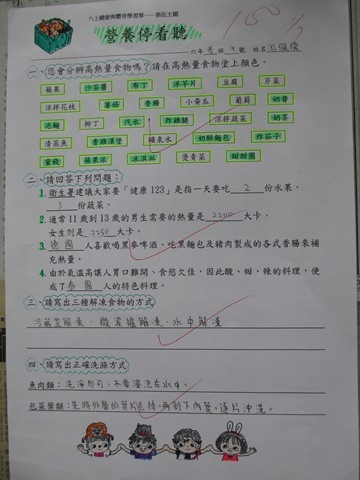 六上健康與體育學習單——第伍主題
營養停看聽
六年 班 號 姓名
100
一、您會分辨高熱量食物嗎？請在高熱量食物塗上顏色。
蘋果 沙茶醬 布丁 洋芋片 豆腐 芹菜
涼拌花枝 薯條 香腸 小黃瓜 葡萄 奶昔
泡麵 柳丁 汽水 炸雞翅 涼拌蔬菜 奶茶
清蒸魚 香雞漢堡 礦泉水 奶酥麵包 炸茄子
蜜餞 蘋果派 冰淇淋 燙青菜 甜甜圈
二、請回答下列問題：
1. 衛生署建議大家要「健康123」是指一天要吃 2 份水果，
3 份蔬菜。
2. 通常11歲到13歲的男生需要的熱量是 2200 大卡，
女生則是 2250 大卡。
3. 德國 人喜歡喝黑麥啤酒、吃黑麵包及豬肉製成的各式香腸來補
充熱量。
4. 由於氣溫高讓人胃口難開、食慾欠佳，因此酸、甜、辣的料理，便
成了 泰國 人的特色料理。
三、請寫出三種解凍食物的方式
冷藏室解凍、微波爐解凍、水中解凍
四、請寫出正確洗滌方式
魚肉類：洗淨即可，不要浸泡在水中。
包葉菜類：先將外層的葉片丟掉，再剝下內葉，逐片沖洗。